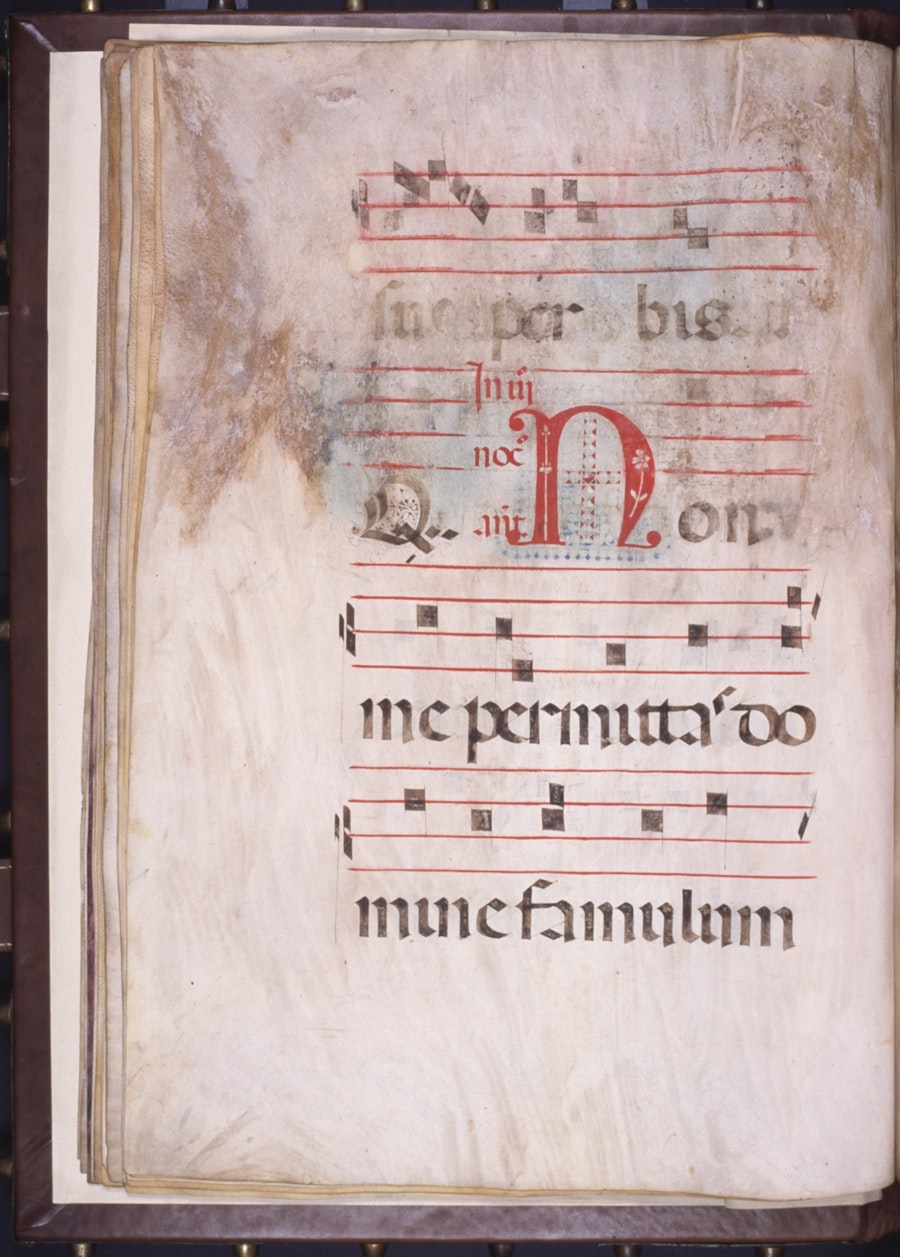 super bis
In iij
noc̄
Q. añt. Non
me permittas do
mine famulum